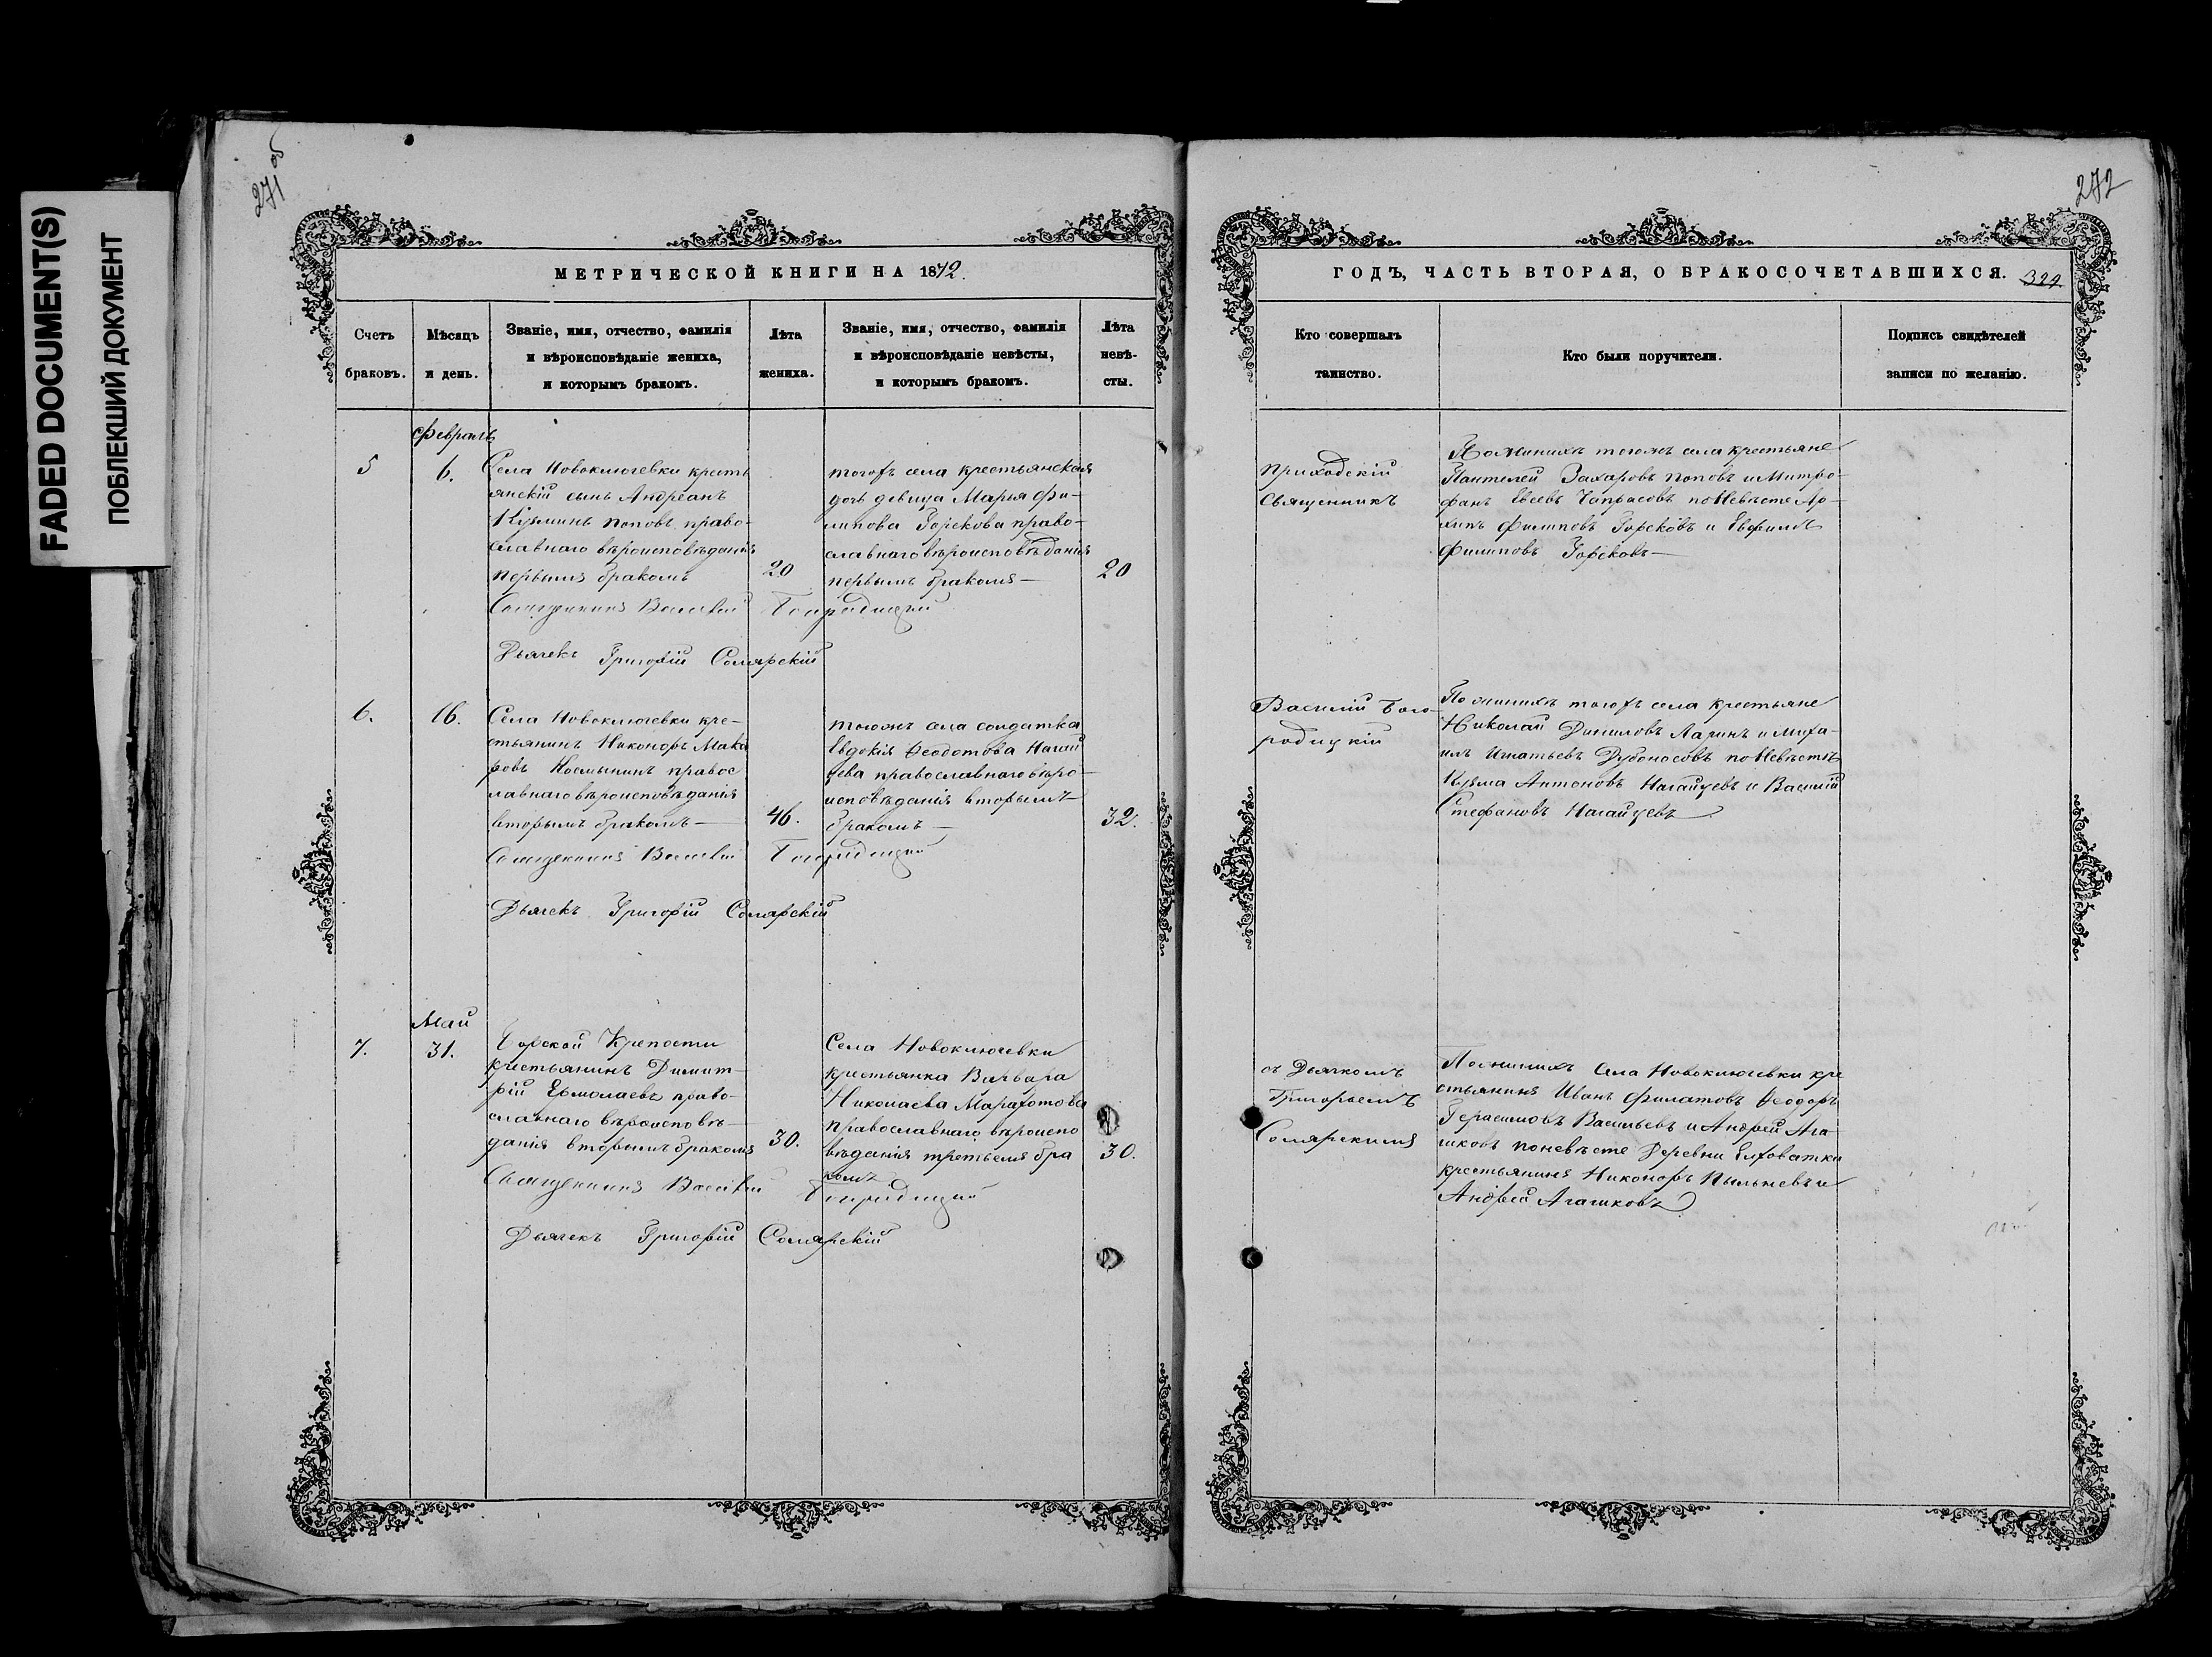 FADED DOCUMENT(S)
ПОБЛЕКШИЙ ДОКУМЕНТ
271 об
МЕТРИЧЕСКОЙ КНИГИ НА 1872.
Счетъ браковъ.
Мѣсяцъ и день.
Званіе, имя, отчество, фамилія
и вѣроисповѣданіе жениха,
и которымъ бракомъ.
Лѣта жениха.
Званіе, имя, отчество, фамилія
и вѣроисповѣданіе невѣсты,
и которымъ бракомъ.
Лѣта невѣ-
сты.
Февраль
5
6.
Села Новоключевки кресть
янскій сынъ Андреанъ
Кузминъ Поповъ право-
славнаго вѣроисповѣданія
первымъ бракомъ
20
тогожъ села крестьянская
дочь девица Марья Фи-
липова Горекова право-
славнаго вѣроисповѣданія
первымъ бракомъ —
20
Священникъ Василій Богородицкій
Дьячекъ Григорій Солярскій
6.
16.
Села Новоключевки кре-
стьянинъ Никоноръ Мака
ровъ правос
лавнаго вѣроисповѣданія
вторымъ бракомъ —
46.
тогожъ села солдатка
Евдокія Феодотова Нагай
цева православнаго вѣро-
исповѣданія вторымъ
бракомъ —
32.
Священникъ Василій Богородицкій
Дьячекъ Григорій Солярскій
Май
7.
31.
Борской Крепости
крестьянинъ Димит-
рій Ермолаевъ право-
славнаго вѣроисповѣ-
данія вторымъ бракомъ
30.
Села Новоключевки
крестьянка Варвара
Николаева
православнаго вѣроиспо
вѣданія третьемъ бра
комъ
30.
Священникъ Василій Богородицкій
Дьячекъ Григорій Солярскій
272
ГОДЪ, ЧАСТЬ ВТОРАЯ, О БРАКОСОЧЕТАВШИХСЯ.
Кто совершалъ
таинство.
Кто были поручители.
Подпись свидѣтелей
записи по желанію.
Приходскій
Священникъ
По женихѣ тогожъ села крестьяне
Пантелей Захаровъ Поповъ и Митро-
фанъ Евсевъ Чапрасовъ по Невѣсте Ар-
хипъ Филиповъ Горековъ и Евфимъ
Филиповъ Горековъ —
Василій Бого-
родицкій
По женихѣ тогожъ села крестьяне
Николай Даниловъ Ларинъ и Миха-
илъ Игнатьевъ Дубоносовъ по Невѣстѣ
Кузма Антоновъ Нагайцевъ и Василій
Стефановъ Нагайцевъ
съ Дьячкомъ
Григорьемъ
Солярскимъ
По женихѣ села Новоключевки кре
стьянинъ Иванъ Филатовъ Феодоръ
Герасимовъ Васильевъ и Андрей Ага
шковъ по невѣсте Деревни Елховатки
крестьянинъ Никоноръ Пыльневъ и
Андрей Агашковъ